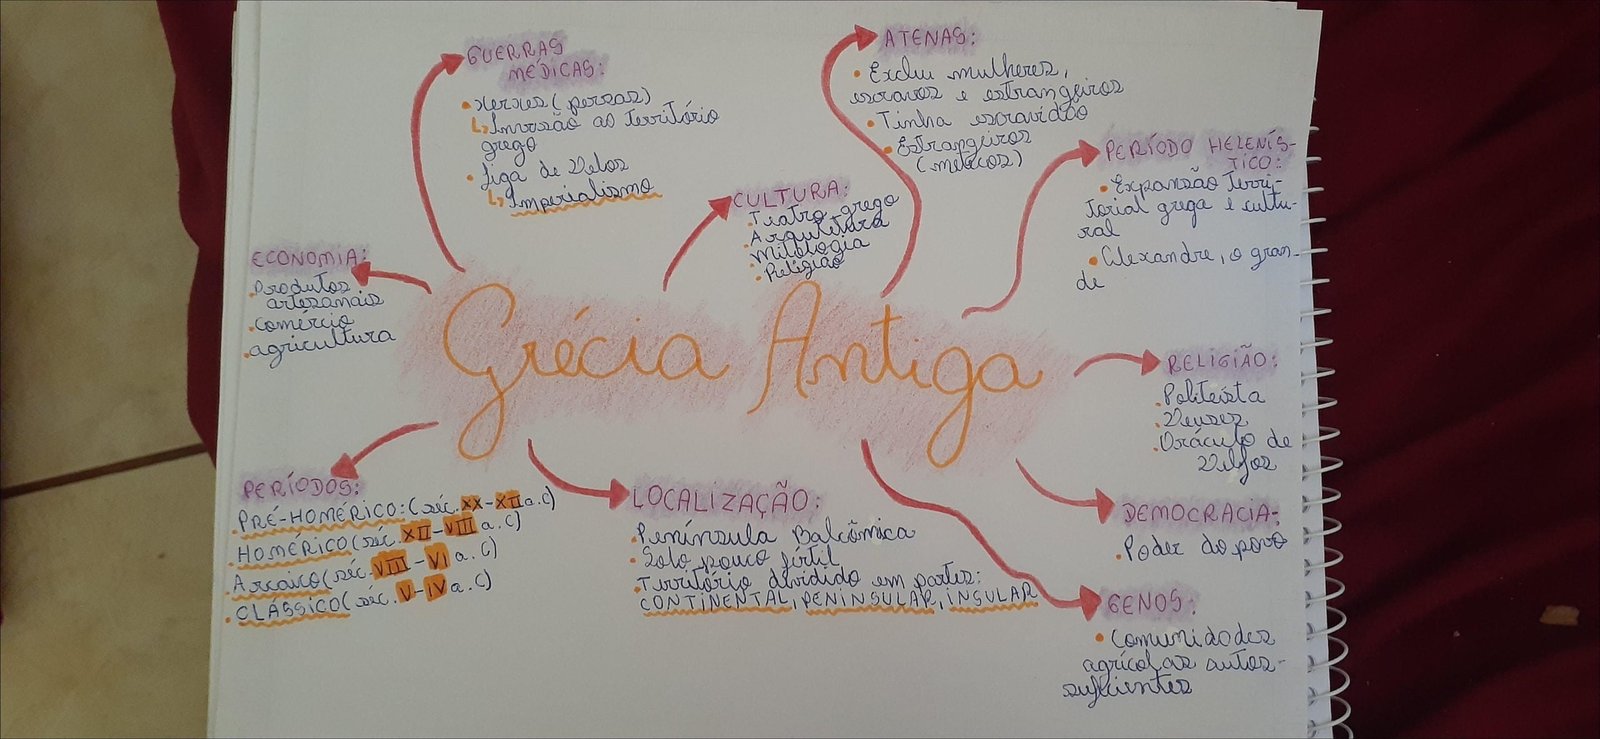 GUERRAS
MÉDICAS:
• Xerxes (persas)
↳ Invasão ao território
grego
• Liga de Delos
↳ Imperialismo
ATENAS:
• Exclui mulheres,
escravos e estrangeiros
• Tinha escravidão
• Estrangeiros
(metecos)
CULTURA:
• Teatro grego
• Arquitetura
• Mitologia
• Religião
PERÍODO HELENÍS-
TICO:
• Expansão terri-
torial grega e cultu-
ral
• Alexandre, o gran-
de
ECONOMIA:
• Produtos
artesanais
• Comércio
• agricultura
Grécia Antiga
RELIGIÃO:
• Politeísta
• Deuses
• Oráculo de
Delfos
PERÍODOS:
• PRÉ-HOMÉRICO: (séc. XX-XII a.C)
• HOMÉRICO (séc. XII-VIII a.C)
• Arcaico (séc. VIII-VI a.C)
• CLÁSSICO (séc. V-IV a.C)
LOCALIZAÇÃO:
• Península Balcômica
• Solo pouco fértil
• Território dividido em partes:
CONTINENTAL, PENINSULAR, INSULAR
DEMOCRACIA:
• Poder do povo
GENOS:
• Comunidades
agrícolas autos-
suficientes